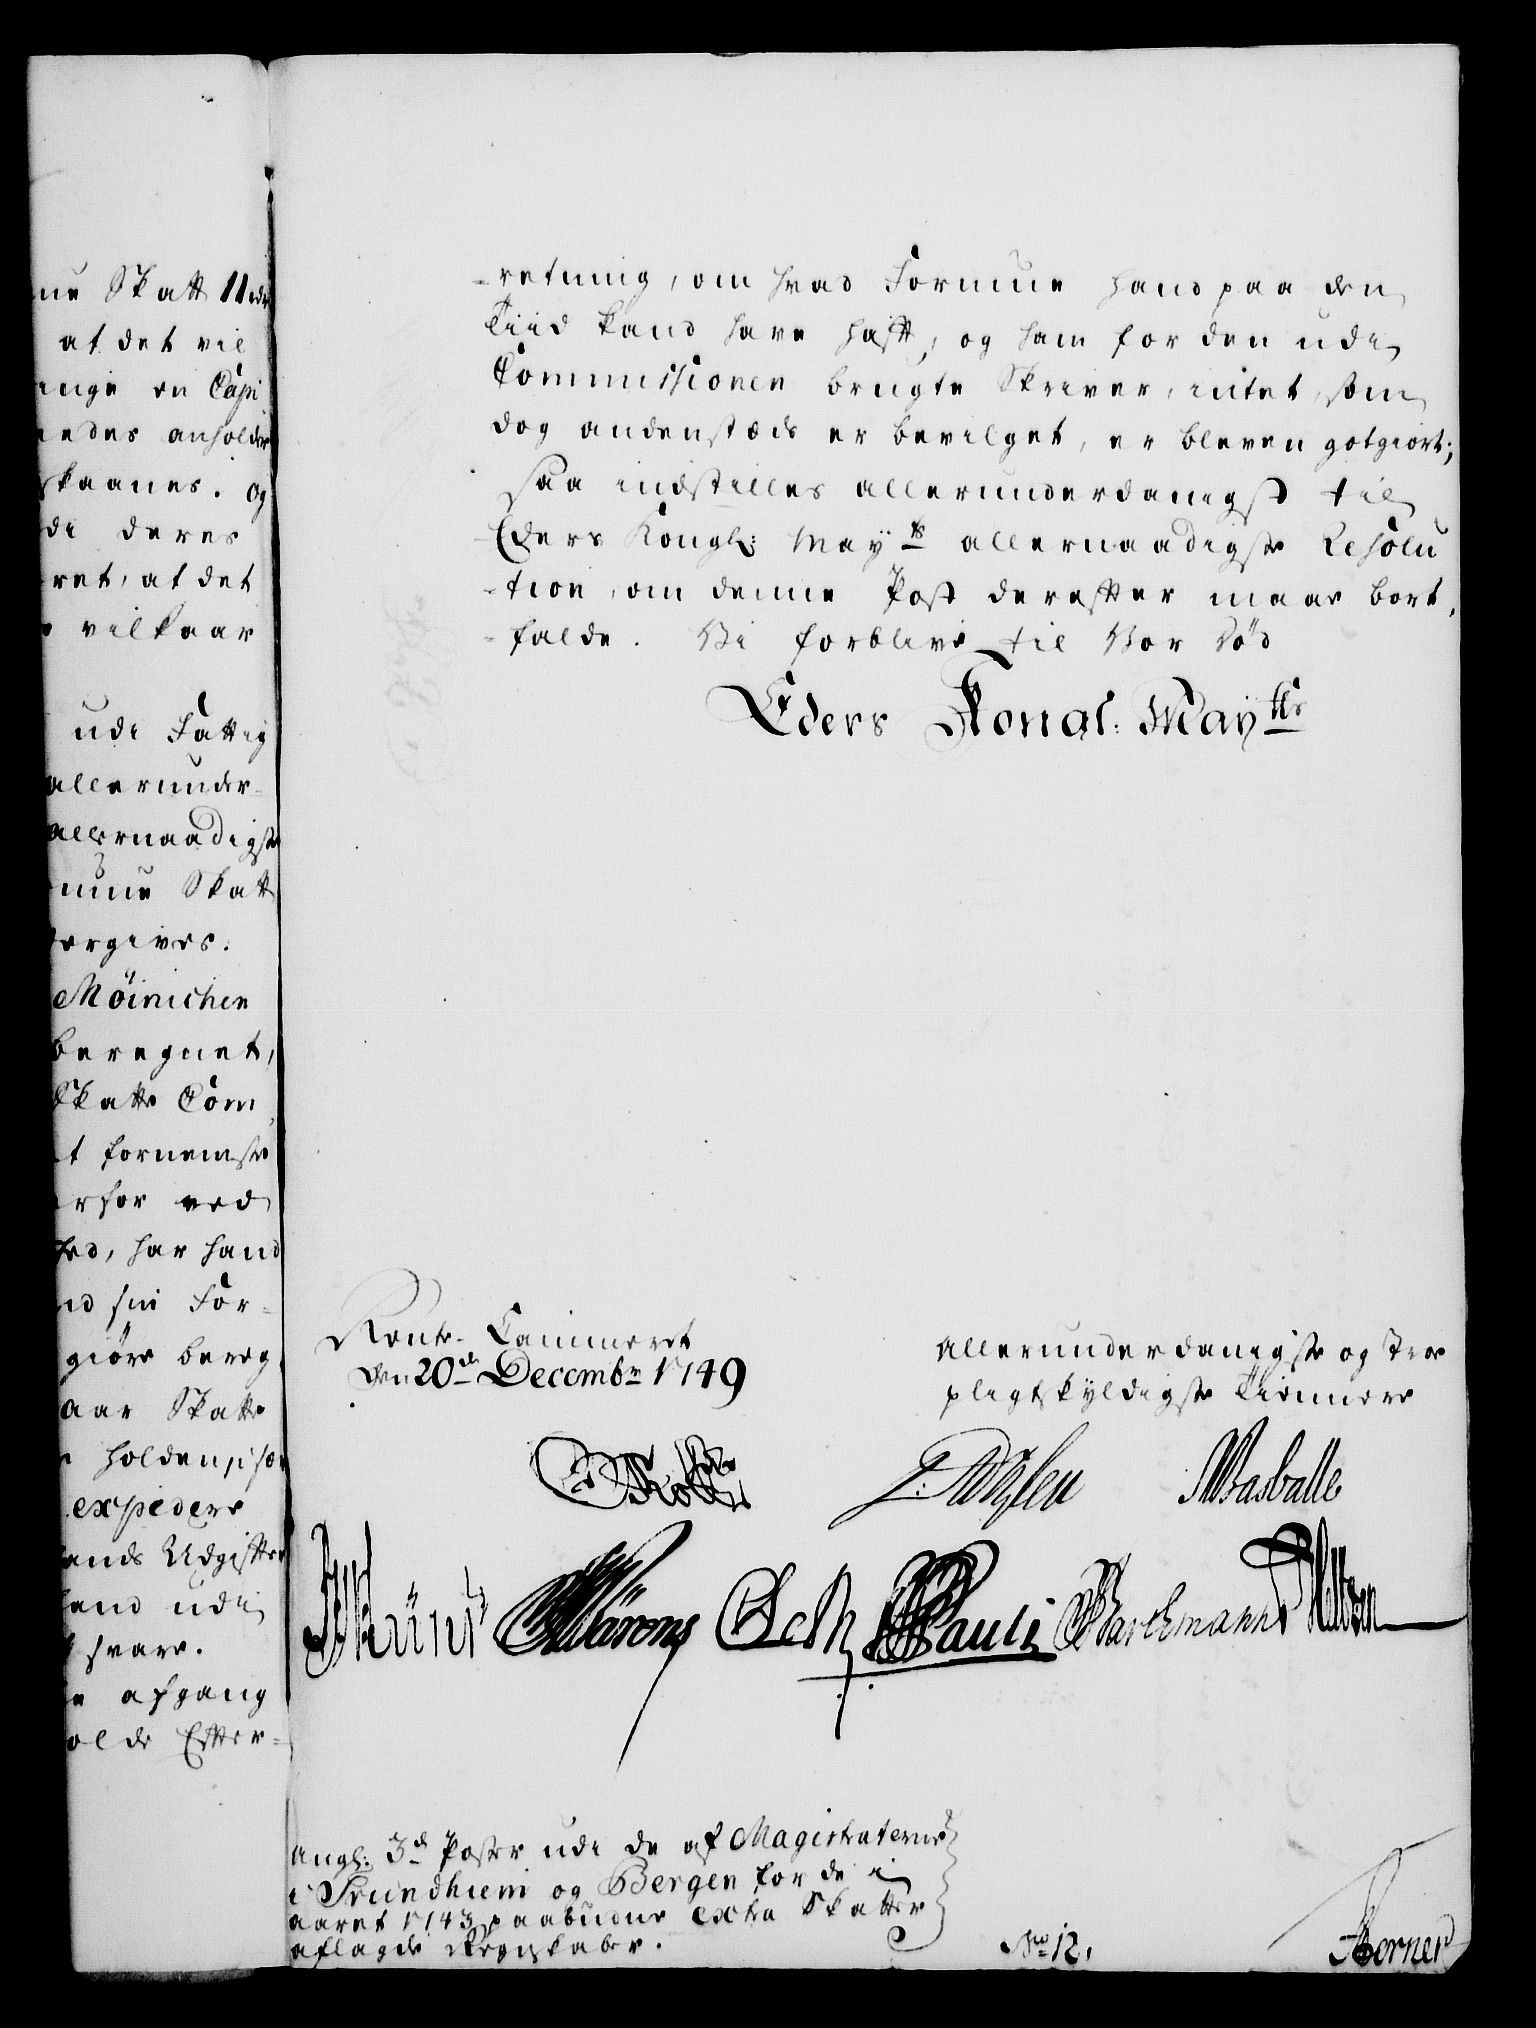 nue Skatt Unde
at det vil
ringe en Capi
eedes anholder
skaanes. og
di deres
ret, at det
vilkaar
udi Fattig
allerunder-
allernaadigste
mue Skatt
ergives.
Möinichen
beregnet,
Skatte Com
t fornemste
erfor ved
hed, har hand
nd sin For-
giöre bereg
aar Skatte
holden, i hen
expedere
ands Udgifter
hand udi
svare.
afgang
olde Efter-
-retning, om hvad Formue hand paa den
Tiid kand have haft, og ham for den udi
Commissionen brugte Skriver, intet, som
dog andenstæds er bevilget, er bleven gotgiort;
saa indstilles allerunderdanigst til
Eders Kongl: Mayts allernaadigste Resolu
-tion, om denne Post derefter maae bort,
-falde. Vi forblive til Vor Död
Eders Kongl: Mayts
Rente-Cammeret
den 20de Decembr 1749
allerunderdanigste og Troe
pligtskyldigste Tiennere
Wasballe
Pauli Barchmann
Angl: 3de Poster udi de af Magistraterne
i Trundhiem og Bergen for de i
aaret 1743 paabudne extra Skatter
aflagde Regnskaber.
No 12.
Berner